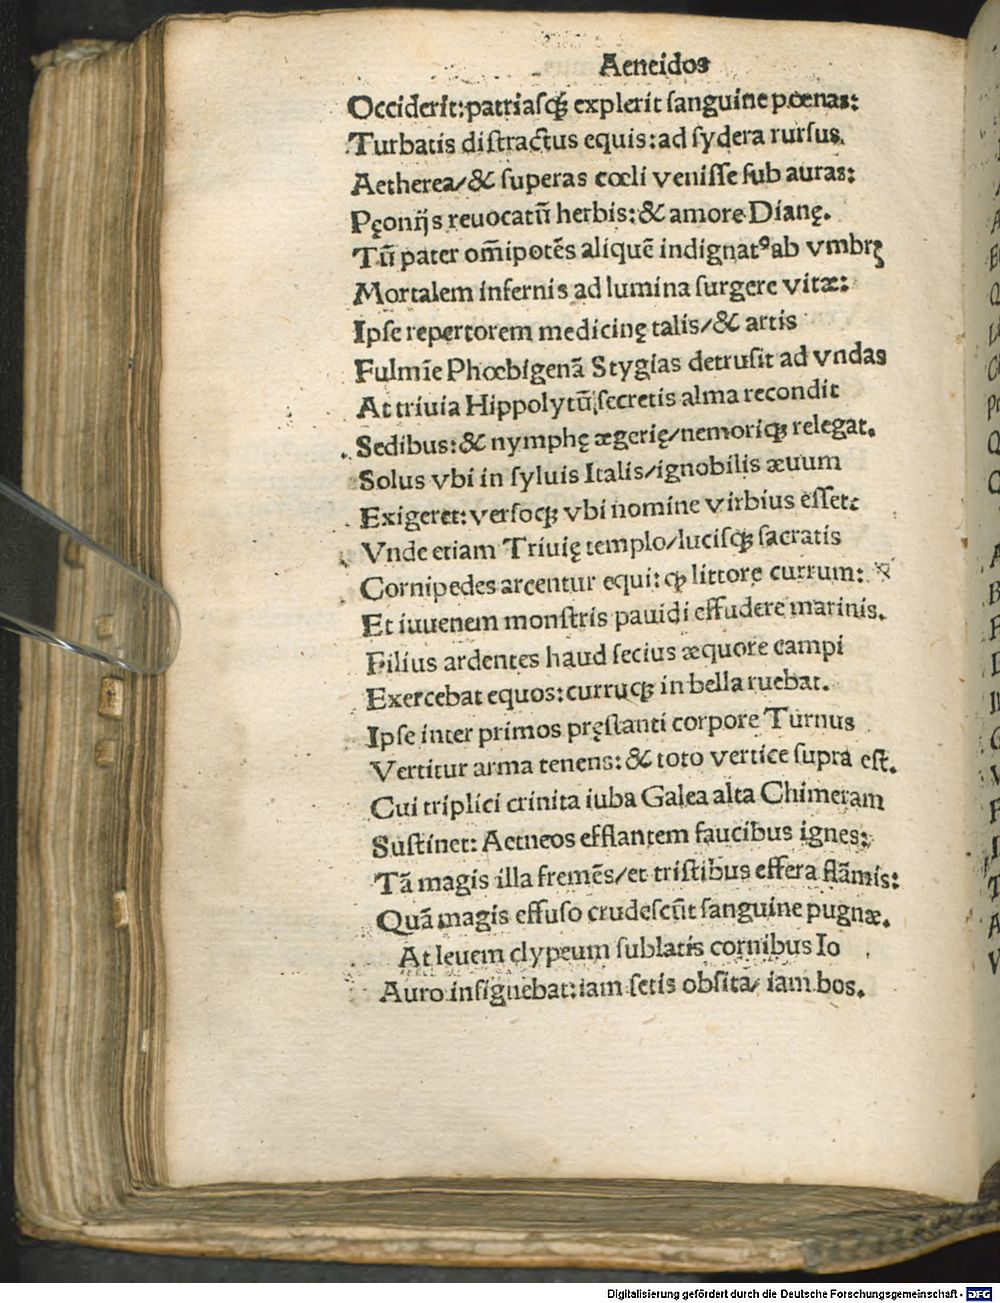 Aeneidos
Occiderit: patriasq; explerit sanguine pœnas:
Turbatis distractus equis: ad sydera rursus.
Aetherea/& superas cœli venisse sub auras:
Pęonijs reuocatū herbis: & amore Dianę.
Tū pater om̄ipotēs aliquē indignatꝰ ab vmbrę
Mortalem infernis ad lumina surgere vitæ:
Ipse repertorem medicinę talis/& artis
Fulmīe Phœbigenā Stygias detrusit ad vndas
At triuia Hippolytū secretis alma recondit
Sedibus: & nymphę ægerię/nemoriq; relegat.
Solus vbi in syluis Italis/ignobilis æuum
Exigeret: versoq; vbi nomine virbius esset:
Vnde etiam Triuię templo/lucisq; sacratis
Cornipedes arcentur equi: ꝙ littore currum:
Et iuuenem monstris pauidi effudere marinis.
Filius ardentes haud secius æquore campi
Exercebat equos: curruq; in bella ruebat.
Ipse inter primos pręstanti corpore Turnus
Vertitur arma tenens: & toto vertice supra est.
Cui triplici crinita iuba Galea alta Chimeram
Sustinet: Aetneos efflantem faucibus ignes:
Tā magis illa fremēs/et tristibus effera flāmis:
Quā magis effuso crudescūt sanguine pugnæ.
At leuem clypeum sublatis cornibus Io
Auro insignebat: iam setis obsita/ iam bos.
Digitalisierung gefördert durch die Deutsche Forschungsgemeinschaft - DFG